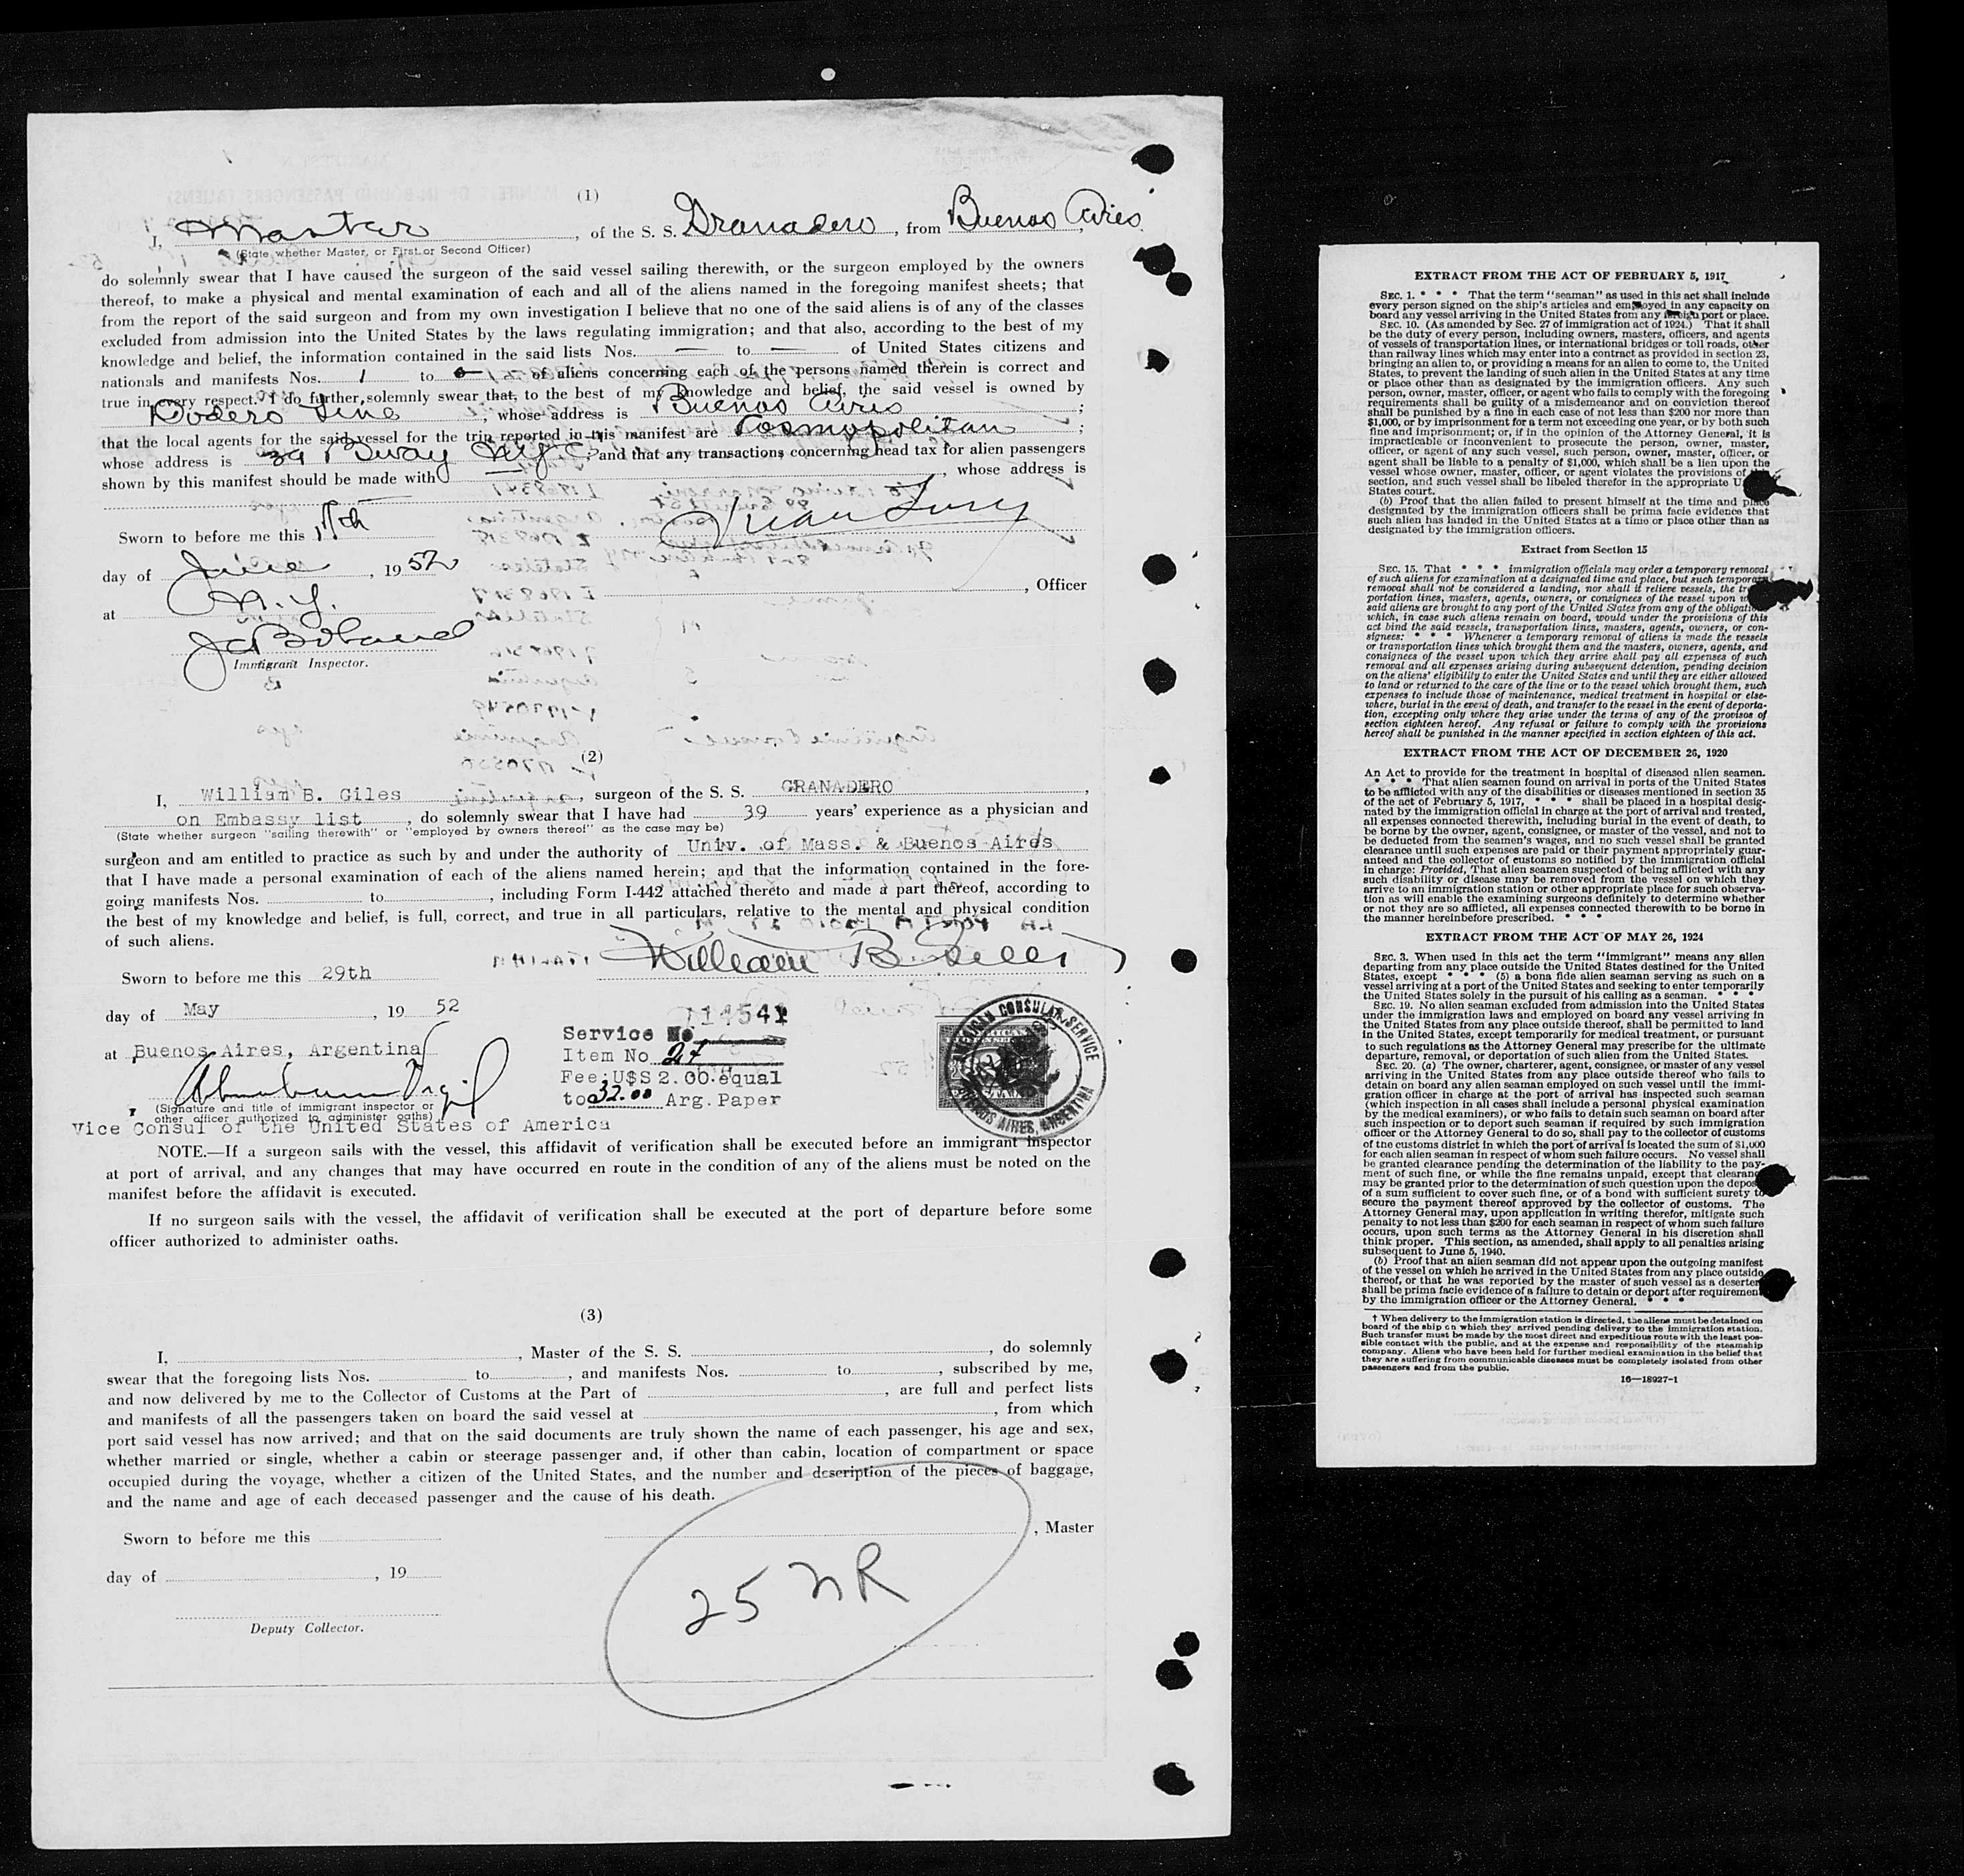 (1)
I, Master, of the S. S. Granadero, from Buenos Aires,
(State whether Master, or First or Second Officer)
do solemnly swear that I have caused the surgeon of the said vessel sailing therewith, or the surgeon employed by the owners
thereof, to make a physical and mental examination of each and all of the aliens named in the foregoing manifest sheets; that
from the report of the said surgeon and from my own investigation I believe that no one of the said aliens is of any of the classes
excluded from admission into the United States by the laws regulating immigration; and that also, according to the best of my
knowledge and belief, the information contained in the said lists Nos. — to — of United States citizens and
nationals and manifests Nos. 1 to of aliens concerning each of the persons named therein is correct and
true in every respect. I do further solemnly swear that, to the best of my knowledge and belief, the said vessel is owned by
Dodero Line, whose address is Buenos Aires;
that the local agents for the said vessel for the trip reported in this manifest are Cosmopolitan;
whose address is 39 Bway N.Y.C. and that any transactions concerning head tax for alien passengers
shown by this manifest should be made with —, whose address is
Sworn to before me this 17th
day of June, 1952
, Officer
at N.Y.
Immigrant Inspector.
(2)
I, William B. Giles, surgeon of the S. S. GRANADERO,
on Embassy list, do solemnly swear that I have had 39 years' experience as a physician and
(State whether surgeon "sailing therewith" or "employed by owners thereof" as the case may be)
surgeon and am entitled to practice as such by and under the authority of Univ. of Mass. & Buenos Aires
that I have made a personal examination of each of the aliens named herein; and that the information contained in the fore-
going manifests Nos. to, including Form I-442 attached thereto and made a part thereof, according to
the best of my knowledge and belief, is full, correct, and true in all particulars, relative to the mental and physical condition
of such aliens.
William B. Giles
Sworn to before me this 29th
day of May, 19 52
at Buenos Aires, Argentina
Service No 114541
Item No. 27
Fee: U$S 2.00 equal
to 32.00 Arg. Paper
AMERICAN CONSULAR SERVICE
BUENOS AIRES, ARGENTINA
(Signature and title of immigrant inspector or
other officer authorized to administer oaths)
Vice Consul of the United States of America
NOTE.—If a surgeon sails with the vessel, this affidavit of verification shall be executed before an immigrant inspector
at port of arrival, and any changes that may have occurred en route in the condition of any of the aliens must be noted on the
manifest before the affidavit is executed.
If no surgeon sails with the vessel, the affidavit of verification shall be executed at the port of departure before some
officer authorized to administer oaths.
(3)
I, , Master of the S. S. , do solemnly
swear that the foregoing lists Nos. to, and manifests Nos. to, subscribed by me,
and now delivered by me to the Collector of Customs at the Part of , are full and perfect lists
and manifests of all the passengers taken on board the said vessel at , from which
port said vessel has now arrived; and that on the said documents are truly shown the name of each passenger, his age and sex,
whether married or single, whether a cabin or steerage passenger and, if other than cabin, location of compartment or space
occupied during the voyage, whether a citizen of the United States, and the number and description of the pieces of baggage,
and the name and age of each deceased passenger and the cause of his death.
Sworn to before me this
, Master
day of , 19
Deputy Collector.
25 NR
EXTRACT FROM THE ACT OF FEBRUARY 5, 1917
SEC. 1. * * * That the term "seaman" as used in this act shall include
every person signed on the ship's articles and employed in any capacity on
board any vessel arriving in the United States from any foreign port or place.
SEC. 10. (As amended by Sec. 27 of immigration act of 1924.) That it shall
be the duty of every person, including owners, masters, officers, and agents
of vessels of transportation lines, or international bridges or toll roads, other
than railway lines which may enter into a contract as provided in section 23,
bringing an alien to, or providing a means for an alien to come to, the United
States, to prevent the landing of such alien in the United States at any time
or place other than as designated by the immigration officers. Any such
person, owner, master, officer, or agent who fails to comply with the foregoing
requirements shall be guilty of a misdemeanor and on conviction thereof
shall be punished by a fine in each case of not less than $200 nor more than
$1,000, or by imprisonment for a term not exceeding one year, or by both such
fine and imprisonment; or, if in the opinion of the Attorney General, it is
impracticable or inconvenient to prosecute the person, owner, master,
officer, or agent of any such vessel, such person, owner, master, officer, or
agent shall be liable to a penalty of $1,000, which shall be a lien upon the
vessel whose owner, master, officer, or agent violates the provisions of
section, and such vessel shall be libeled therefor in the appropriate U
States court.
(b) Proof that the alien failed to present himself at the time and place
designated by the immigration officers shall be prima facie evidence that
such alien has landed in the United States at a time or place other than as
designated by the immigration officers.
Extract from Section 15
SEC. 15. That * * * immigration officials may order a temporary removal
of such aliens for examination at a designated time and place, but such temporary
removal shall not be considered a landing, nor shall it relieve vessels, the tr
portation lines, masters, agents, owners, or consignees of the vessel upon w
said aliens are brought to any port of the United States from any of the obligatio
which, in case such aliens remain on board, would under the provisions of this
act bind the said vessels, transportation lines, masters, agents, owners, or con-
signees: * * * Whenever a temporary removal of aliens is made the vessels
or transportation lines which brought them and the masters, owners, agents, and
consignees of the vessel upon which they arrive shall pay all expenses of such
removal and all expenses arising during subsequent detention, pending decision
on the aliens' eligibility to enter the United States and until they are either allowed
to land or returned to the care of the line or to the vessel which brought them, such
expenses to include those of maintenance, medical treatment in hospital or else-
where, burial in the event of death, and transfer to the vessel in the event of deporta-
tion, excepting only where they arise under the terms of any of the provisos of
section eighteen hereof. Any refusal or failure to comply with the provisions
hereof shall be punished in the manner specified in section eighteen of this act.
EXTRACT FROM THE ACT OF DECEMBER 26, 1920
An Act to provide for the treatment in hospital of diseased alien seamen.
* * * That alien seamen found on arrival in ports of the United States
to be afflicted with any of the disabilities or diseases mentioned in section 35
of the act of February 5, 1917, * * * shall be placed in a hospital desig-
nated by the immigration official in charge at the port of arrival and treated,
all expenses connected therewith, including burial in the event of death, to
be borne by the owner, agent, consignee, or master of the vessel, and not to
be deducted from the seamen's wages, and no such vessel shall be granted
clearance until such expenses are paid or their payment appropriately guar-
anteed and the collector of customs so notified by the immigration official
in charge: Provided, That alien seamen suspected of being afflicted with any
such disability or disease may be removed from the vessel on which they
arrive to an immigration station or other appropriate place for such observa-
tion as will enable the examining surgeons definitely to determine whether
or not they are so afflicted, all expenses connected therewith to be borne in
the manner hereinbefore prescribed. * * *
EXTRACT FROM THE ACT OF MAY 26, 1924
SEC. 3. When used in this act the term "immigrant" means any alien
departing from any place outside the United States destined for the United
States, except * * * (5) a bona fide alien seaman serving as such on a
vessel arriving at a port of the United States and seeking to enter temporarily
the United States solely in the pursuit of his calling as a seaman. * * *
SEC. 19. No alien seaman excluded from admission into the United States
under the immigration laws and employed on board any vessel arriving in
the United States from any place outside thereof, shall be permitted to land
in the United States, except temporarily for medical treatment, or pursuant
to such regulations as the Attorney General may prescribe for the ultimate
departure, removal, or deportation of such alien from the United States.
SEC. 20. (a) The owner, charterer, agent, consignee, or master of any vessel
arriving in the United States from any place outside thereof who fails to
detain on board any alien seaman employed on such vessel until the immi-
gration officer in charge at the port of arrival has inspected such seaman
(which inspection in all cases shall include a personal physical examination
by the medical examiners), or who fails to detain such seaman on board after
such inspection or to deport such seaman if required by such immigration
officer or the Attorney General to do so, shall pay to the collector of customs
of the customs district in which the port of arrival is located the sum of $1,000
for each alien seaman in respect of whom such failure occurs. No vessel shall
be granted clearance pending the determination of the liability to the pay-
ment of such fine, or while the fine remains unpaid, except that clearance
may be granted prior to the determination of such question upon the depos
of a sum sufficient to cover such fine, or of a bond with sufficient surety to
secure the payment thereof approved by the collector of customs. The
Attorney General may, upon application in writing therefor, mitigate such
penalty to not less than $200 for each seaman in respect of whom such failure
occurs, upon such terms as the Attorney General in his discretion shall
think proper. This section, as amended, shall apply to all penalties arising
subsequent to June 5, 1940.
(b) Proof that an alien seaman did not appear upon the outgoing manifest
of the vessel on which he arrived in the United States from any place outside
thereof, or that he was reported by the master of such vessel as a deserter
shall be prima facie evidence of a failure to detain or deport after requirement
by the immigration officer or the Attorney General. * * *
† When delivery to the immigration station is directed, the aliens must be detained on
board of the ship on which they arrived pending delivery to the immigration station.
Such transfer must be made by the most direct and expeditious route with the least pos-
sible contact with the public, and at the expense and responsibility of the steamship
company. Aliens who have been held for further medical examination in the belief that
they are suffering from communicable diseases must be completely isolated from other
passengers and from the public.
16—18927-1